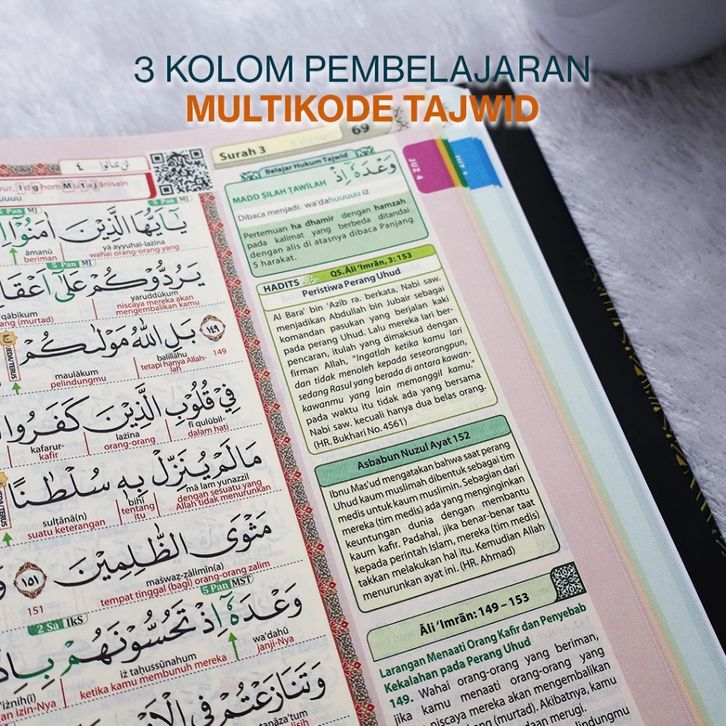 3 KOLOM PEMBELAJARAN
MULTIKODE TAJWID
٤ لن تنالوا
Surah 3
69
Belajar Hukum Tajwid
وَعْدَهٗٓ اِذْ
MADD ṢILAH ṬAWILAH
Dibaca menjadi: wa'dahuuuuu iż
Pertemuan ha dhamir dengan hamzah
pada kalimat yang berbeda ditandai
dengan alis di atasnya dibaca Panjang
5 harakat.
JUZ 4
HADITS
QS. Āli 'Imrān, 3: 153
Peristiwa Perang Uhud
Al Bara' bin 'Azib ra. berkata, Nabi saw.
menjadikan Abdullah bin Jubair sebagai
komandan pasukan yang berjalan kaki
pada perang Uhud. Lalu mereka lari ber-
pencaran, itulah yang dimaksud dengan
firman Allah. "Ingatlah ketika kamu lari
dan tidak menoleh kepada seseorangpun,
sedang Rasul yang berada di antara kawan-
kawanmu yang lain memanggil kamu."
pada waktu itu tidak ada yang bersama
Nabi saw. kecuali hanya dua belas orang.
(HR. Bukhari No. 4561)
Asbabun Nuzul Ayat 152
Ibnu Mas'ud mengatakan bahwa saat perang
Uhud kaum muslimah dibentuk sebagai tim
medis untuk kaum muslimin. Sebagian dari
mereka (tim medis) ada yang menginginkan
keuntungan dunia dengan membantu
kaum kafir. Padahal, jika benar-benar taat
kepada perintah Islam, mereka (tim medis)
takkan melakukan hal itu. Kemudian Allah
menurunkan ayat ini. (HR. Ahmad)
Āli 'Imrān: 149 – 153
Larangan Menaati Orang Kafir dan Penyebab
Kekalahan pada Perang Uhud
149. Wahai orang-orang yang beriman,
jika kamu menaati orang-orang yang
niscaya mereka akan mengembalikan
(murtad). Akibatnya, kamu
dan merugi.
5 Pan MJ
يٰٓاَيُّهَا الَّذِيْنَ اٰمَنُوْٓا
āmanū yā ayyuhal-lażīna
beriman wahai orang-orang yang
5 Pan MJ
يَرُدُّوْكُمْ عَلٰٓى اَعْقَا
qābikum yaruddūkum
ng (murtad) niscaya mereka akan
mengembalikan kamu
بَلِ اللّٰهُ مَوْلٰىكُمْ ١٤٩
maulākum balillāhu 149
pelindungmu tetapi hanya Allah-
lah
فِيْ قُلُوْبِ الَّذِيْنَ كَفَرُوا
kafarur- lażīna fī qulūbil-
kafir orang-orang dalam hati
مَا لَمْ يُنَزِّلْ بِهٖ سُلْطٰنًا
sulṭānā(n) bihī mā lam yunazzil
suatu keterangan tentang itu dengan sesuatu yang
Allah tidak menurunkan
١٥١ مَثْوَى الظّٰلِمِيْنَ
151 maṡwaẓ-ẓālimīn(a)
tempat tinggal (bagi) orang-orang zalim
2 Sa IkS 5 Pan MST
وَعْدَهٗٓ اِذْ تَحُسُّوْنَهُمْ
iż taḥussūnahum wa'dahū
ketika kamu membunuh mereka janji-Nya
وَتَنَازَعْتُمْ فِى الْاَ